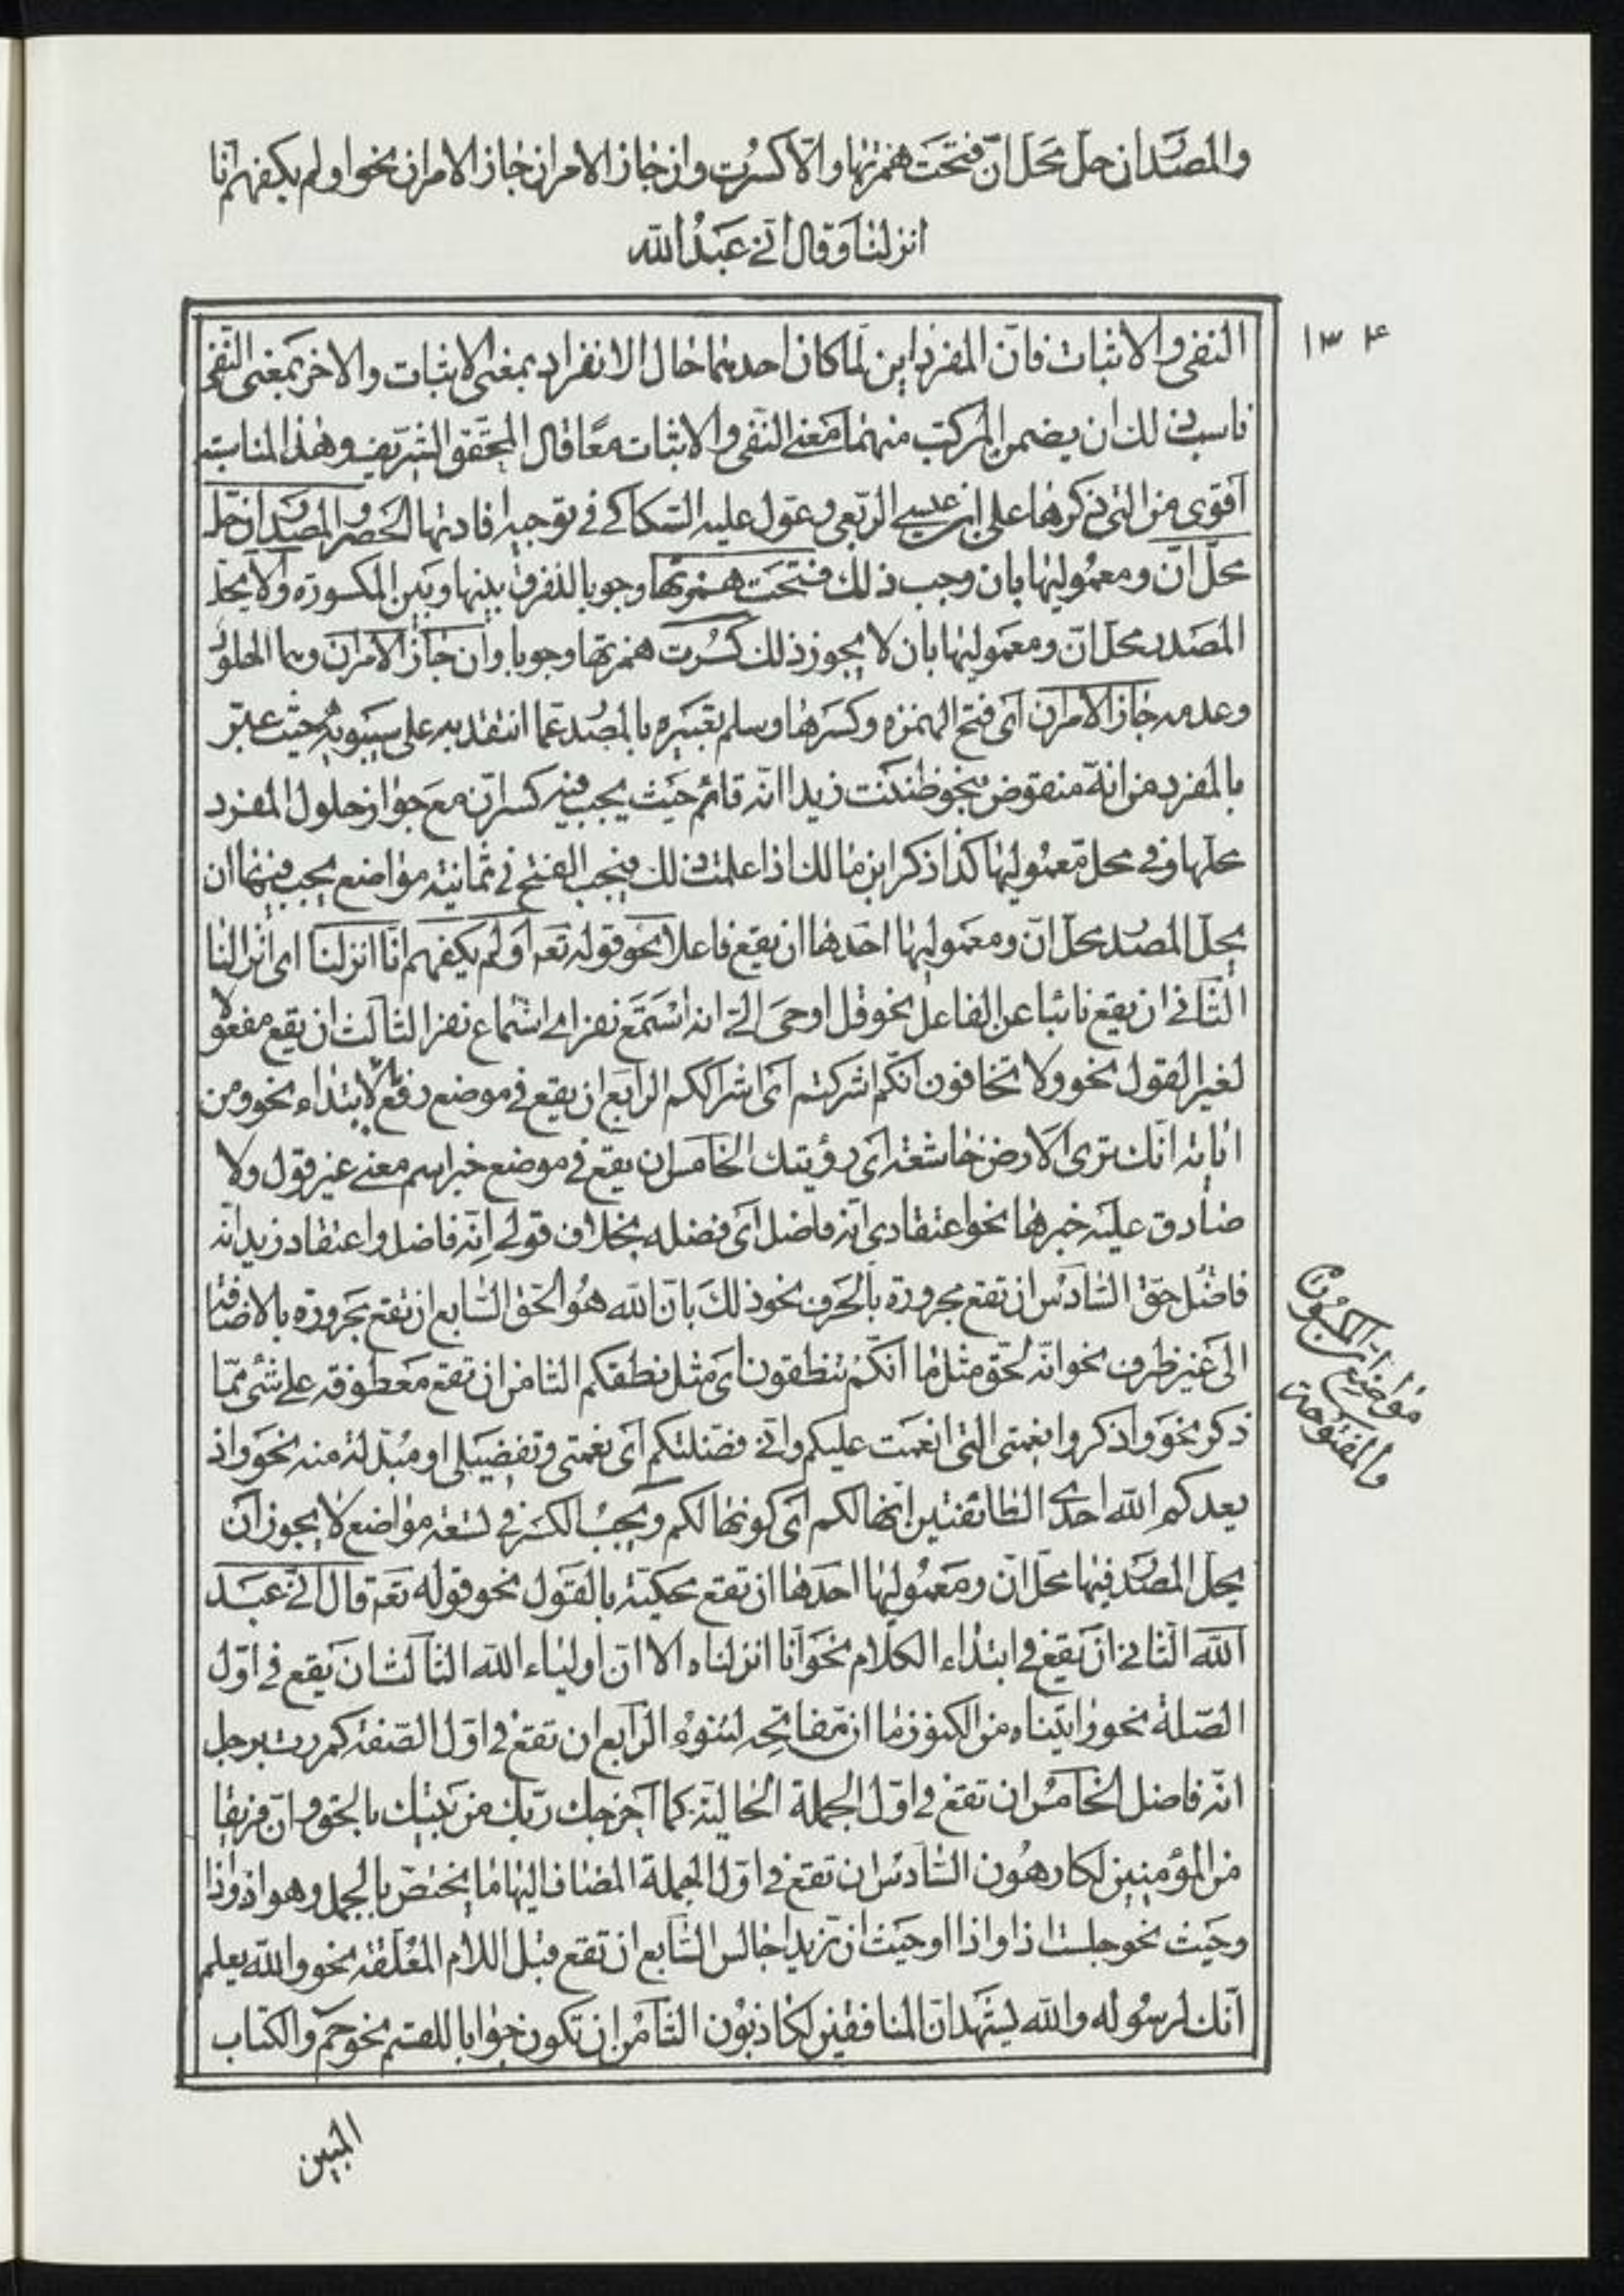 والمصدر ان حل محل انّ فتحت همزتها والّا كسرت وان جاز الامران جاز الامران نحو اولم يكفهم انّا
انزلنا وقال انّى عبد الله
١٣۴
النفى والاثبات فانّ المفردين لمّا كان احدهما حال الانفراد بمعنى الاثبات والاخر بمعنى النّفى
ناسب ذلك ان يضمن المركّب منهما معنى النّفى والاثبات معًا قال المحقّق الشّريف وهذه المناسبة
اقوى من التى ذكرها على ابن عيسى الرّبعى وعوّل عليه السّكاكى فى توجيه افادتها الحصر والمصدر ان حلّ
محلّ انّ ومعموليها بان وجب ذلك فتحت همزتها وجوبا للفرق بينها وبين المكسورة والّا يحلّ
المصدر محل انّ ومعموليها بان لا يجوز ذلك كسرت همزتها وجوبا وان جاز الامران وهما الحلول
وعدمه جاز الامران اى فتح الهمزه وكسرها وسلم تعبيره بالمصدر عمّا انتقد به على سيبويه حيث عبّر
بالمفرد من انّه منقوض بنحو ظننت زيدا انّه قائم حيث يجب فيه كسر انّ مع جواز حلول المفرد
محلّها وفى محلّ معموليها كذا ذكر ابن مالك اذا علمت ذلك فيجب الفتح فى ثمانية مواضع يجب فيها ان
يحلّ المصدر محلّ انّ ومعموليها احدها ان يقع فاعلا نحو قوله تعه اولم يكفهم انّا انزلنا اى انزالنا
الثّانى ان يقع نائبا عن الفاعل نحو قل اوحى الىّ انه استمع نفر اى استماع نفر الثالث ان يقع مفعولا
لغير القول نحو ولا تخافون انّكم اشركتم اى اشراككم الرابع ان يقع فى موضع رفع بالابتداء نحو ومن
اياته انّك ترى الارض خاشعة اى رؤيتك الخامس ان يقع فى موضع خبر اسم معنى غير قول ولا
صادق عليه خبرها نحو اعتقادى انّه فاضل اى فضله بخلاف قولى انّه فاضل واعتقاد زيد انّه
فاضل حقّ السّادس ان تقع مجرورة بالحرف نحو ذلك بانّ الله هو الحقّ السّابع ان تقع مجرورة بالاضافة
الى غير ظرف نحو انّه لحقّ مثل ما انّكم تنطقون اى مثل نطقكم الثامن ان تقع معطوفة على شئ ممّا
ذكر نحو واذكروا نعمتى التى انعمت عليكم وانّى فضلتكم اى نعمتى وتفضيلى او مبدلة منه نحو واذ
يعدكم الله احدى الطائفتين انّها لكم اى كونها لكم ويجب الكسر فى تسعة مواضع لا يجوز ان
يحل المصدر فيها محلّ انّ ومعموليها احدها ان تقع محكية بالقول نحو قوله تعه قال انّى عبد
الله الثانى ان تقع فى ابتداء الكلام نحو انّا انزلناه الا انّ اولياء الله الثالث ان يقع فى اوّل
الصّلة نحو واتيناه من الكنوز ما ان مفاتحه لتنوء الرّابع ان تقع فى اوّل الصّفة كمررت برجل
انّه فاضل الخامس ان تقع فى اوّل الجملة الحالية كما اخرجك ربّك من بيتك بالحق وانّ فريقا
من المؤمنين لكارهون السّادس ان تقع فى اوّل الجملة المضاف اليها ما يختصّ بالجمل وهو اذ واذا
وحيث نحو جلست اذ او اذا او حيث انّ زيدا جالس السّابع ان تقع قبل اللام المعلّقة نحو والله يعلم
انّك لرسوله والله يشهد انّ المنافقين لكاذبون الثّامن ان تكون جوابا للقسم نحو حم والكتاب
مواضع انّ المكسورة
والمفتوحة
المبين